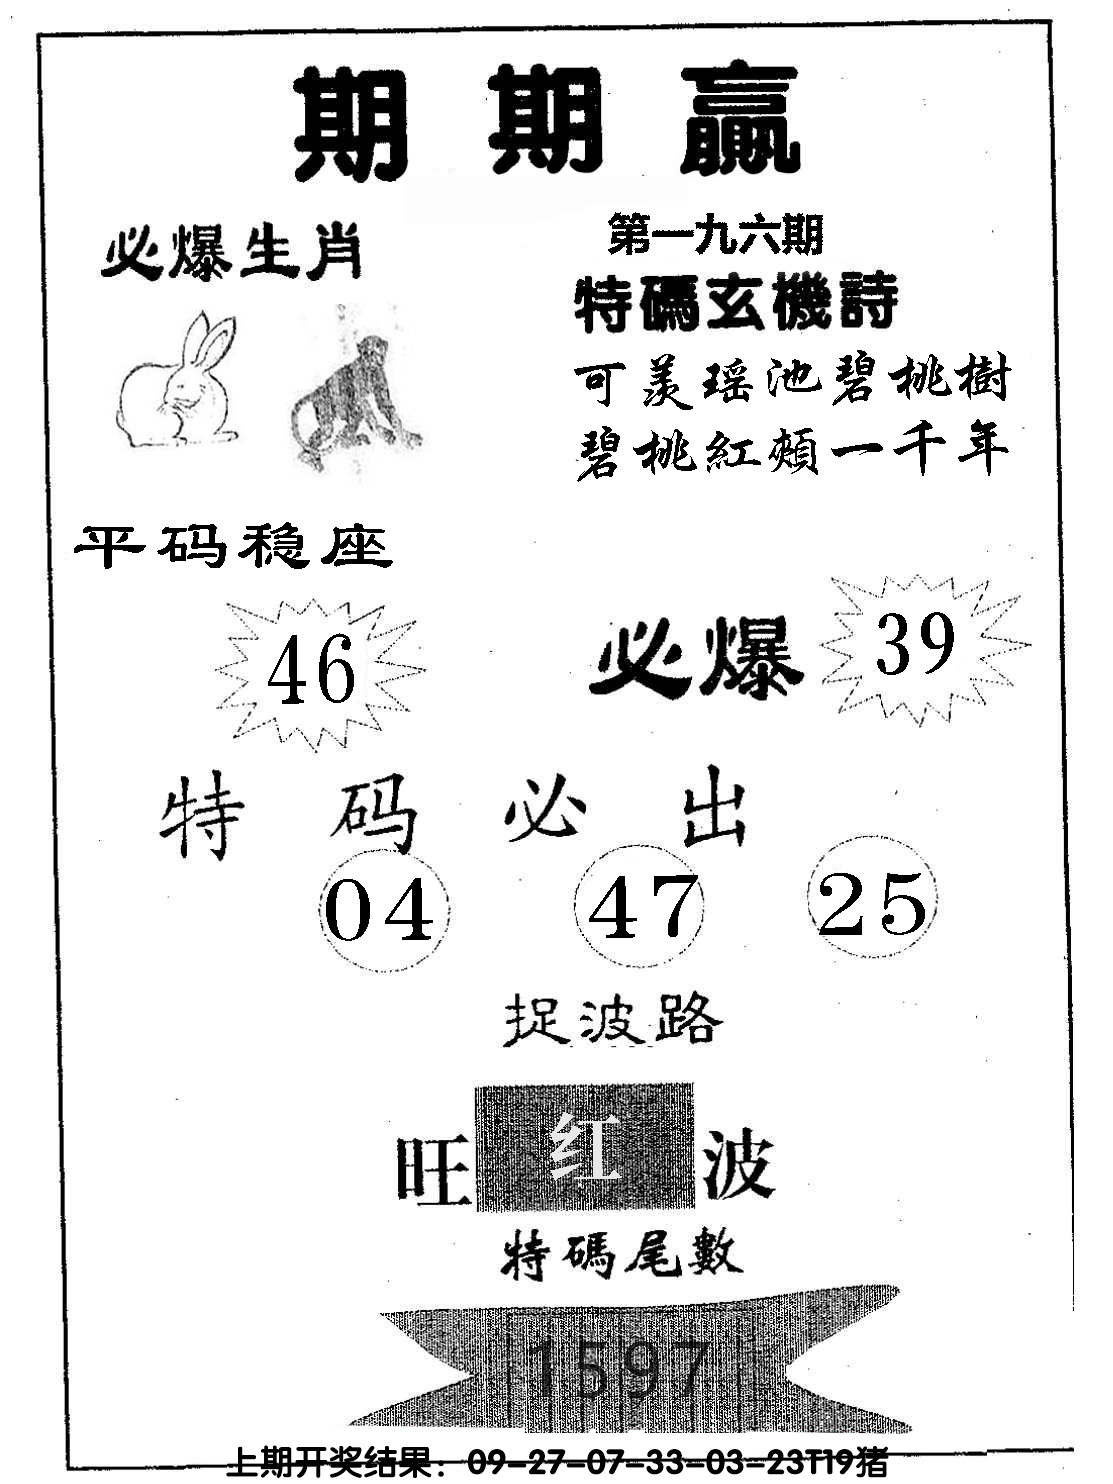 期期赢
必爆生肖
第一九六期
特碼玄機詩
可羨瑶池碧桃樹
碧桃紅頰一千年
平码稳座
46
必爆 39
特码必出
04 47 25
捉波路
旺 红 波
特碼尾數
1597
上期开奖结果：09-27-07-33-03-23T19猪